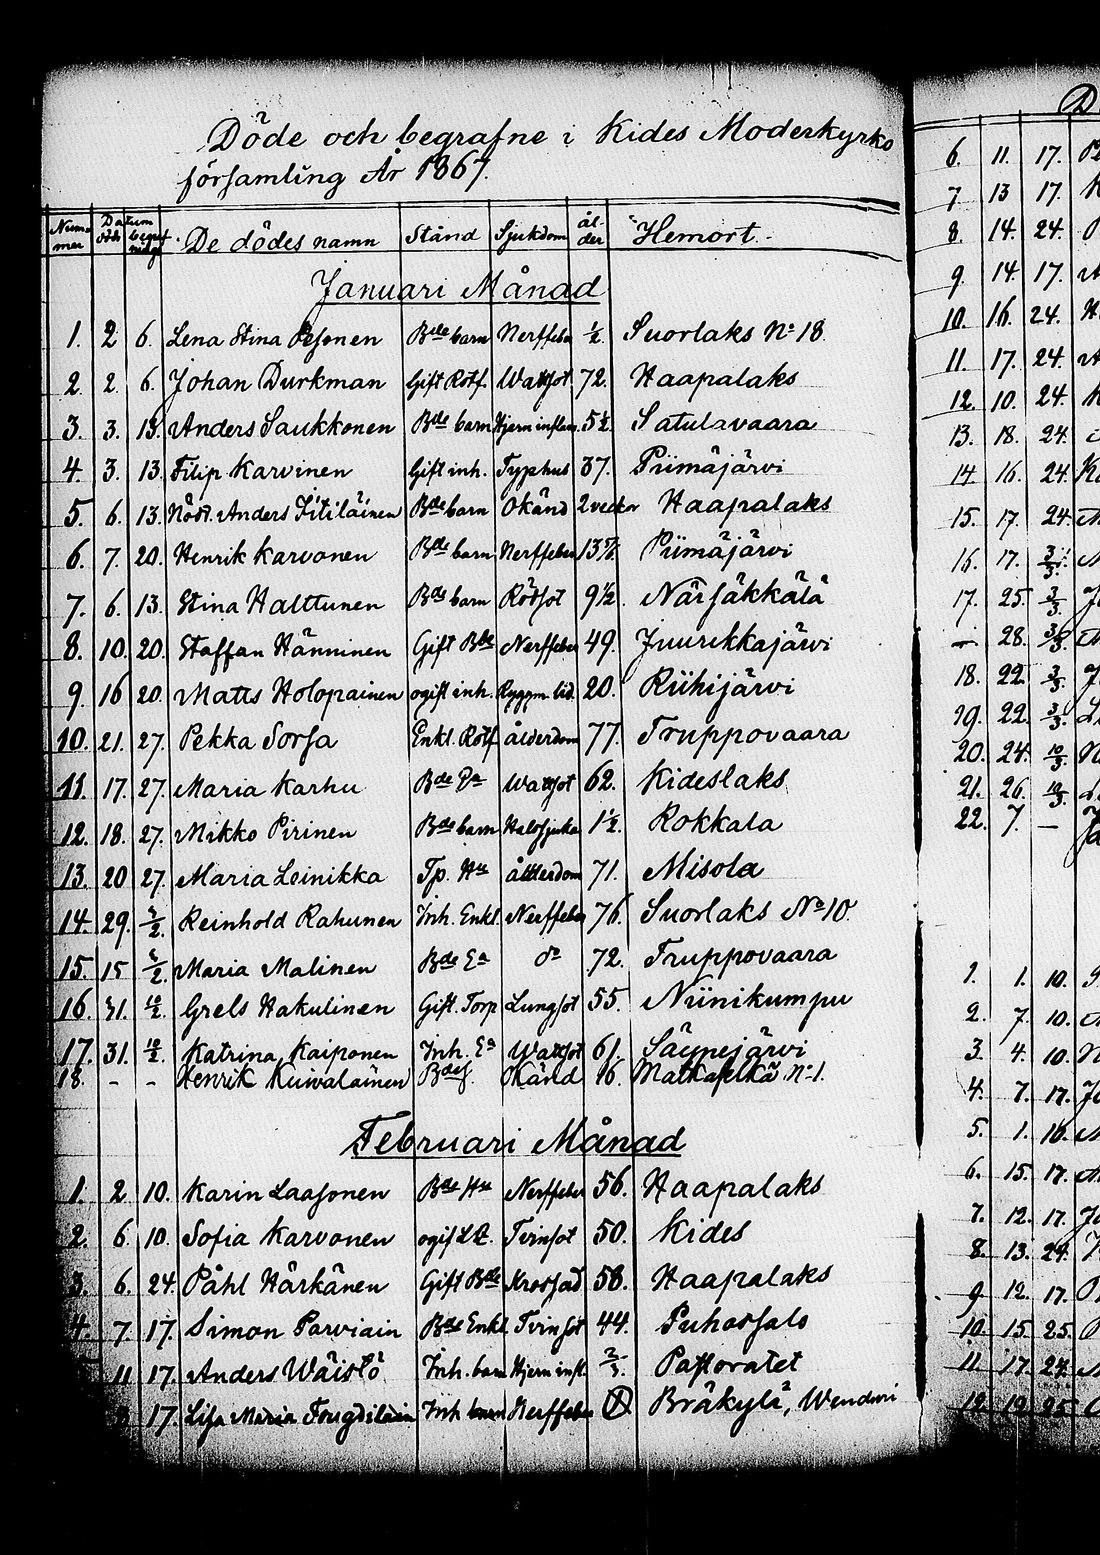 Döde och begrafne i Kides Moderkyrko
församling År 1867.
Nummer Datum död begrafning De dödes namn Stånd Sjukdom ålder Hemort.
Januari Månad
1. 2 6. Lena Stina Pesonen Bde barn Nerffeber ½. Suorlaks No 18.
2 2. 6. Johan Durkman Gift Rotf. Wattsot 72. Haapalaks
3. 3. 13. Anders Saukkonen Bde barn Hjern inflam. 5½. Satulavaara
4. 3. 13. Filip Karvinen Gift inh. Typhus 37. Piimäjärvi
5. 6. 13. Nödf. Anders Jitiläinen Bde barn Okänd 2 veckor Haapalaks
6. 7. 20. Henrik Karvonen Bde barn Nerffeber 13 Piimäjärvi
7. 6. 13. Stina Halttunen Bde barn Rödsot 9½. Närsäkkälä
8. 10. 20. Staffan Hänninen Gift Bde Nerffeber 49. Juurikkajärvi
9 16 20. Matts Holopainen ogift inh. Ryggm. lid. 20. Riihijärvi
10. 21. 27. Pekka Sorsa Enkl. Rotf. ålderdom 77. Truppovaara
11. 17. 27. Maria Karhu Bde Ea Wattsot 62. Kideslaks
12. 18. 27. Mikko Pirinen Bde barn Halssjuka 1½. Rokkala
13. 20 27. Maria Leinikka Tp. Hu ålderdom 71. Misola
14. 29. 3/2. Reinhold Rahunen Inh. Enkl. Nerffeber 76. Suorlaks No 10.
15. 15 3/2. Maria Malinen Bde Ea do 72. Truppovaara
16. 31. 10/2. Grels Hakulinen Gift. Torp Lungsot 55. Niinikumpu
17. 31. 10/2. Katrina Kaiponen Inh. Ea Wattsot 61. Säynejärvi
18. - - Henrik Kuivalainen Bdes. Okänd 16. Matkaselkä No 1.
Februari Månad
1. 2 10. Karin Laasonen Bde Hu Nerffeber 56. Haapalaks
2. 6. 10. Sofia Karvonen ogif Tvinsot 50. Kides
3. 6. 24. Påhl Härkänen Gift Bde Krossad 58. Haapalaks
4. 7. 17. Simon Parviain Bde Enkl Tvinsot 44. Puhossalo
11 17. Anders Wäistö Inh. barn Hjern infl. Pastoratet
8. 17. Lisa Maria Fougdiläin Inh barn Nerffeber Bräkylä,
6. 11. 17.
7 13 17.
8. 14. 24.
9. 14. 17.
10. 16. 24.
11. 17. 24.
12. 10. 24.
13. 18. 24.
14 16. 24.
15. 17. 24.
16. 17. 3/3.
17. 25. 3/3.
- 28. 3/3.
18. 22. 3/3.
19. 22. 3/3.
20. 24. 10/3.
21. 26. 10/3.
22. 7. -
1. 1. 10.
2. 7. 10.
3. 4. 10.
4. 7. 17.
5. 1. 10.
6. 15. 17.
7. 12. 17.
8. 13. 24.
9 12. 17.
10. 15. 25.
11. 17. 24.
12. 19. 25.